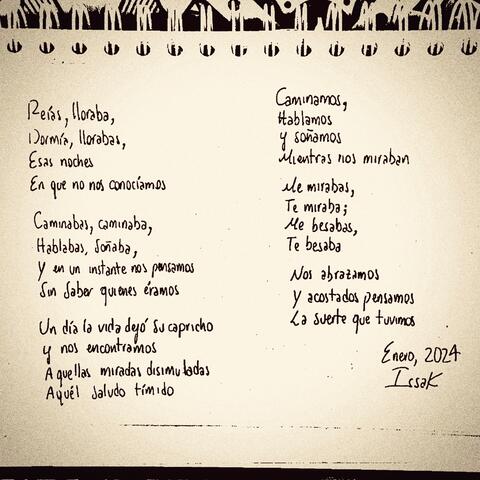 Reías, lloraba,
Dormía, llorabas,
Esas noches
En que no nos conocíamos
Caminabas, caminaba,
Hablabas, Soñaba,
Y en un instante nos pensamos
Sin Saber quienes éramos
Un día la vida dejó su capricho
y nos encontramos
Aquellas miradas disimuladas
Aquél saludo tímido
Caminamos,
Hablamos
y soñamos
Mientras nos miraban
Me mirabas,
Te miraba;
Me besabas,
Te besaba
Nos abrazamos
Y acostados pensamos
La suerte que tuvimos
Enero, 2024
Issak